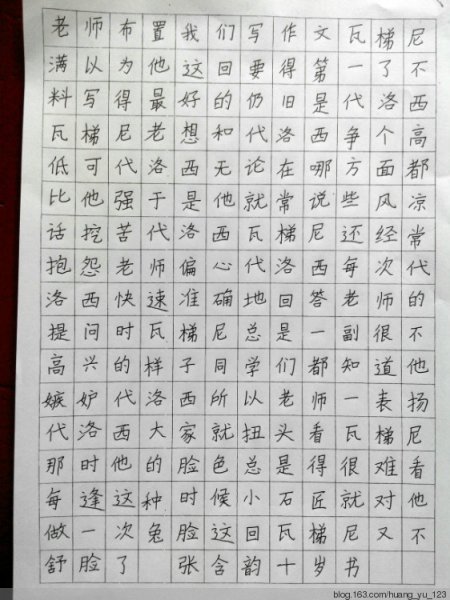 老师布置我们写作文瓦梯尼
满以为他这回要得第一了不
料写得最好的仍旧是代洛西
瓦梯尼老想和代洛西争个高
低可代洛西无论在哪方面都
比他强于是他就常说些风凉
话挖苦代洛西瓦梯尼还经常
抱怨老师偏心代洛西每次代
洛西快速准确地回答老师的
提问时瓦梯尼总是一副很不
高兴的样子同学们都知道他
嫉妒代洛西所以老师一表扬
代洛西大家就扭头看瓦梯尼
那时他的脸色总是得很难看
每逢这种时候小石匠就对他
做一次兔脸这回瓦梯尼又不
舒脸了 张含韵十岁书
blog.163.com/huang_yu_123